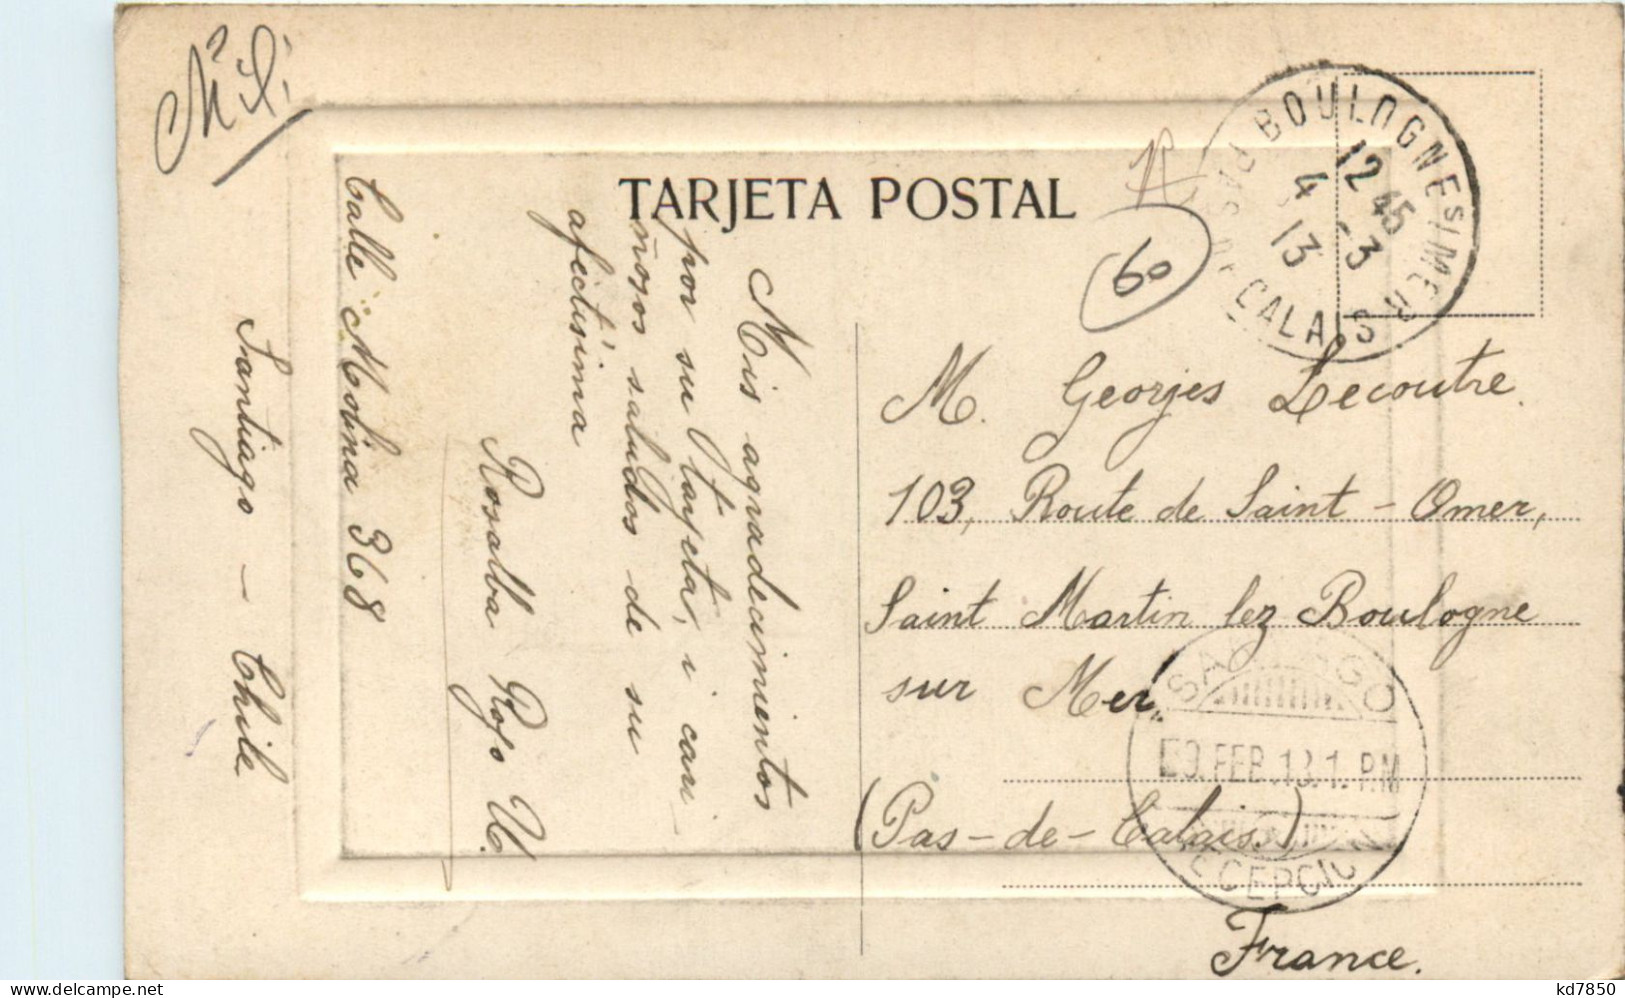 TARJETA POSTAL
60
BOULOGNE S/ MER
PAS DE CALAIS
12 45
4 - 3
13
Mis agradecimientos
por su tarjeta, i cari
ñosos saludos de su
afectísima
Rosalba Rojo U.
Calle Molina 368
Santiago - Chile
M. Georges Lecoutre.
103, Route de Saint-Omer,
Saint Martin lez Boulogne
sur Mer.
(Pas-de-Calais.)
France.
SANTIAGO
FEB. 13. 1 PM
RECEPCION
kd7850